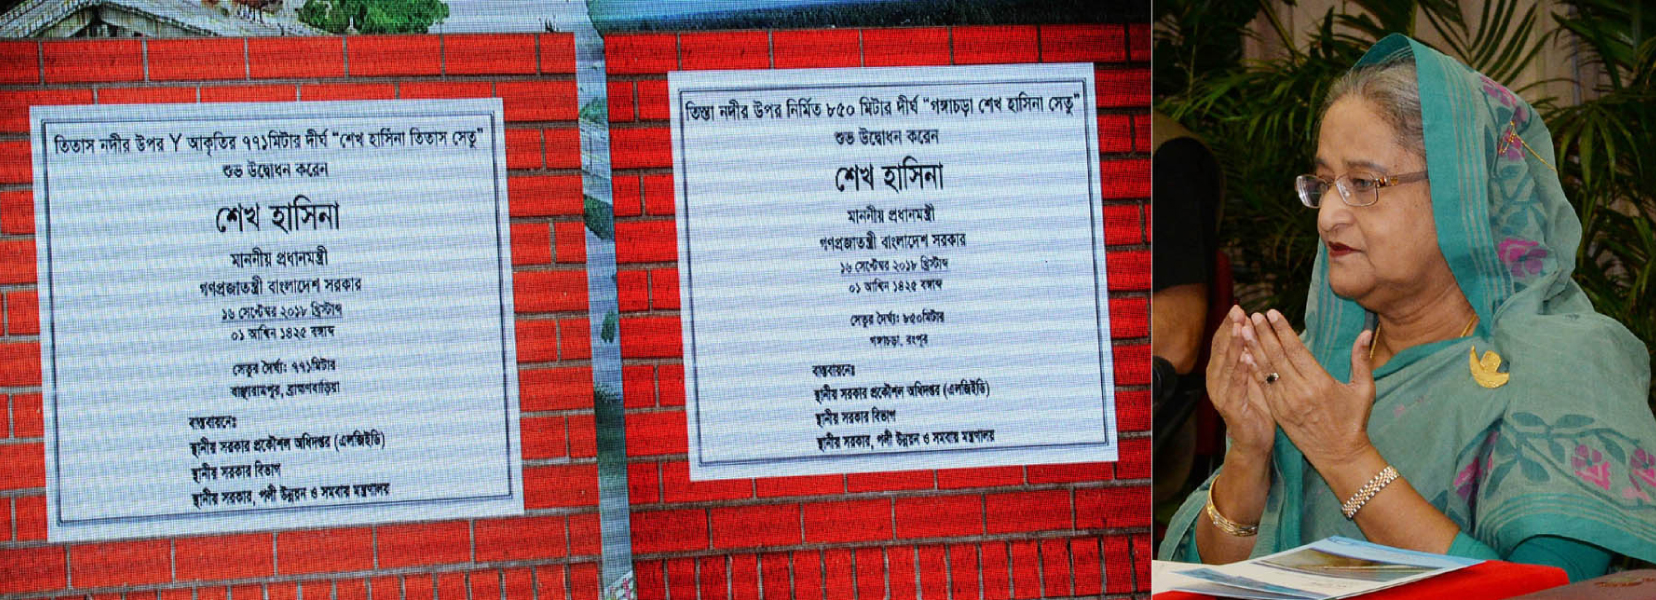 তিতাস নদীর উপর Y আকৃতির ৭৭১মিটার দীর্ঘ "শেখ হাসিনা তিতাস সেতু"
শুভ উদ্বোধন করেন
শেখ হাসিনা
মাননীয় প্রধানমন্ত্রী
গণপ্রজাতন্ত্রী বাংলাদেশ সরকার
১৬ সেপ্টেম্বর ২০১৮ খ্রিস্টাব্দ
০১ আশ্বিন ১৪২৫ বঙ্গাব্দ
সেতুর দৈর্ঘ্যঃ ৭৭১মিটার
বাঞ্ছারামপুর, ব্রাহ্মণবাড়িয়া
বাস্তবায়নেঃ
স্থানীয় সরকার প্রকৌশল অধিদপ্তর (এলজিইডি)
স্থানীয় সরকার বিভাগ
স্থানীয় সরকার, পল্লী উন্নয়ন ও সমবায় মন্ত্রণালয়
তিস্তা নদীর উপর নির্মিত ৮৫০ মিটার দীর্ঘ "গঙ্গাচড়া শেখ হাসিনা সেতু"
শুভ উদ্বোধন করেন
শেখ হাসিনা
মাননীয় প্রধানমন্ত্রী
গণপ্রজাতন্ত্রী বাংলাদেশ সরকার
১৬ সেপ্টেম্বর ২০১৮ খ্রিস্টাব্দ
০১ আশ্বিন ১৪২৫ বঙ্গাব্দ
সেতুর দৈর্ঘ্যঃ ৮৫০মিটার
গঙ্গাচড়া, রংপুর
বাস্তবায়নেঃ
স্থানীয় সরকার প্রকৌশল অধিদপ্তর (এলজিইডি)
স্থানীয় সরকার বিভাগ
স্থানীয় সরকার, পল্লী উন্নয়ন ও সমবায় মন্ত্রণালয়